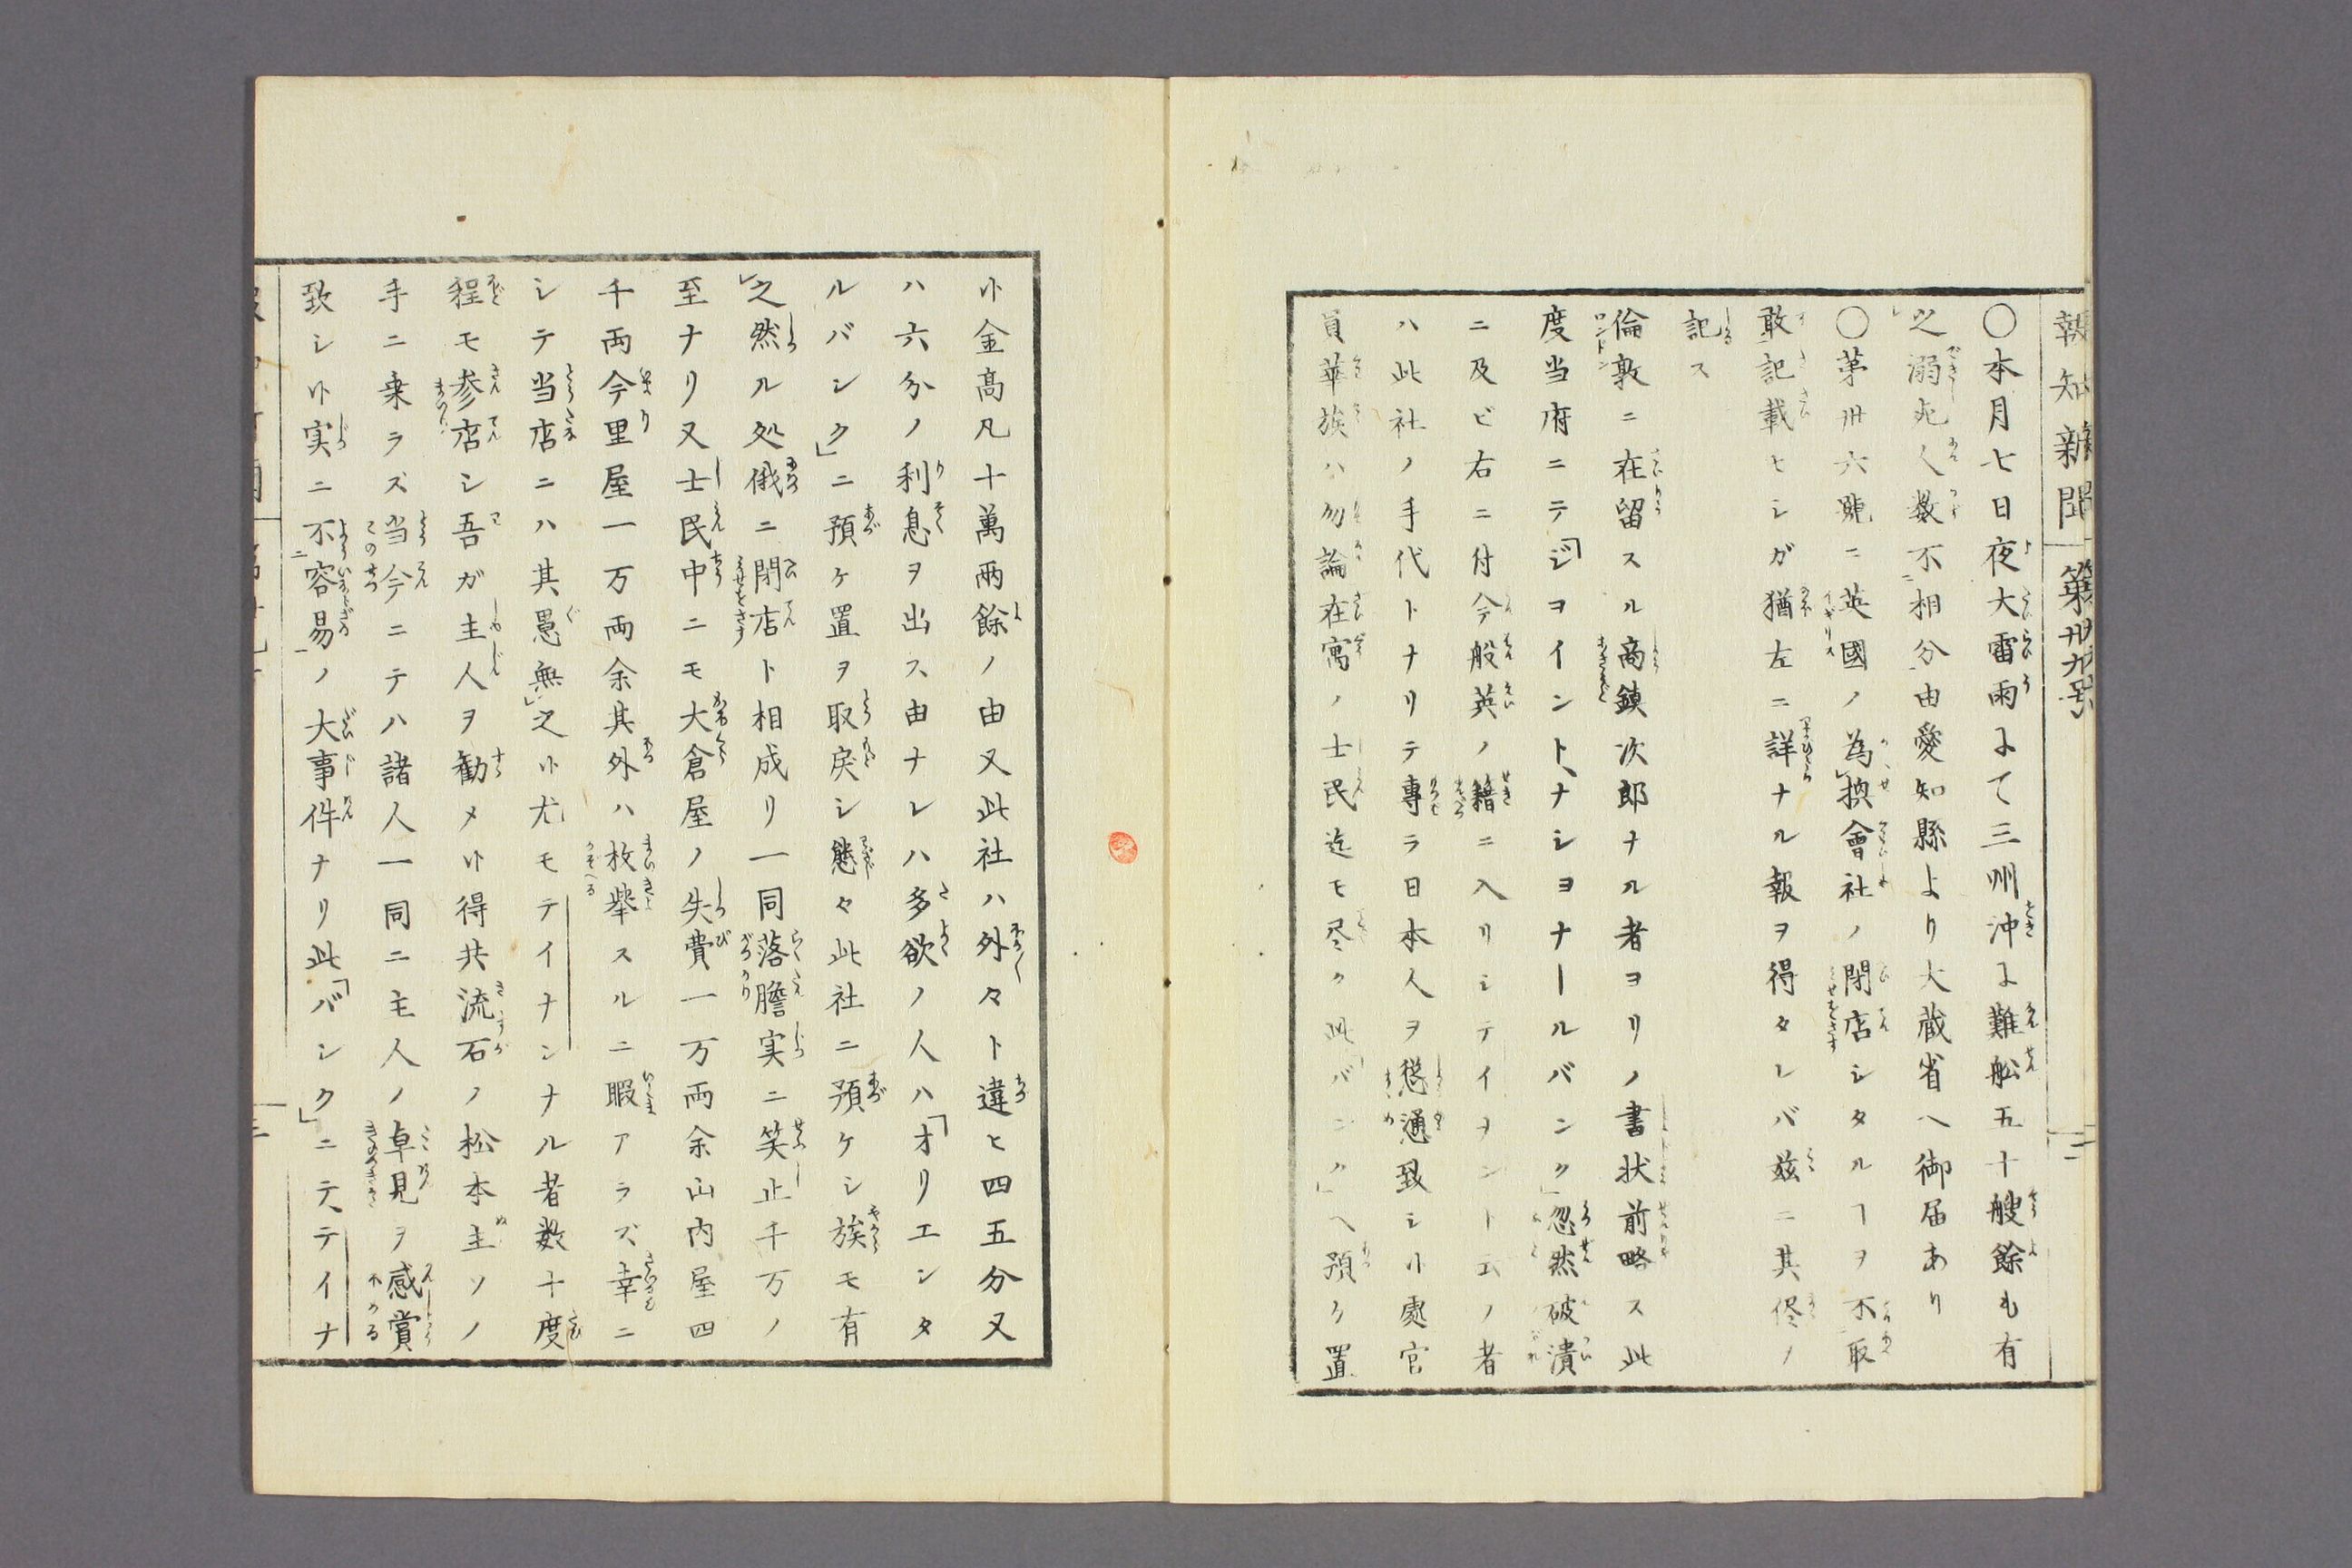 報知新聞 第卅九号 二
〇本月七日夜大雷雨ょて三州沖ょ難舩五十艘餘も有
之溺死人数不相分由愛知縣より大蔵省へ御届あり
〇苐卅六號ニ英國ノ為換會社ノ閉店シタルヿヲ不取
敢記載セシガ猶左ニ詳ナル報ヲ得タレバ玆ニ其侭ノ
記ス
倫敦ニ在留スル高鎮次郎ナル者ヨリノ書状前略ス此
度当府ニテ「ジヨイント、ナシヨナールバンク」忽然破潰
ニ及ビ右ニ付今般英ノ籍ニ入リシテイヲント云ノ者
ハ此社ノ手代トナリテ専ラ日本人ヲ慫通致シ候處官
員華族ハ勿論在寓ノ士民迄モ尽ク此「バンク」ヘ預ケ置
候金高凡十萬両餘ノ由又此社ハ外々ト違ヒ四五分又
ハ六分ノ利息ヲ出ス由ナレハ多欲ノ人ハ「オリエンタ
ルバンク」ニ預ケ置ヲ取戻シ態々此社ニ預ケシ族モ有
之然ル処俄ニ閉店ト相成リ一同落膽実ニ笑止千万ノ
至ナリ又士民中ニモ大倉屋ノ失費一万両余山内屋四
千両今里屋一万両余其外ハ枚挙スルニ暇アラズ幸ニ
シテ当店ニハ其愚無之候尤モテイナンナル者数十度
程モ参店シ吾ガ主人ヲ勧メ候得共流石ノ松本主ソノ
手ニ乗ラズ当今ニテハ諸人一同ニ主人ノ卓見ヲ感賞
致シ候実ニ不容易ノ大事件ナリ此「バンク」ニテテイナ
三